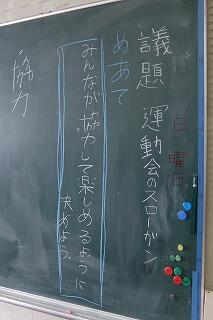 日
曜日
議題 運動会のスローガン
めあて
みんなが協力して楽しめるように
決めよう。
協力